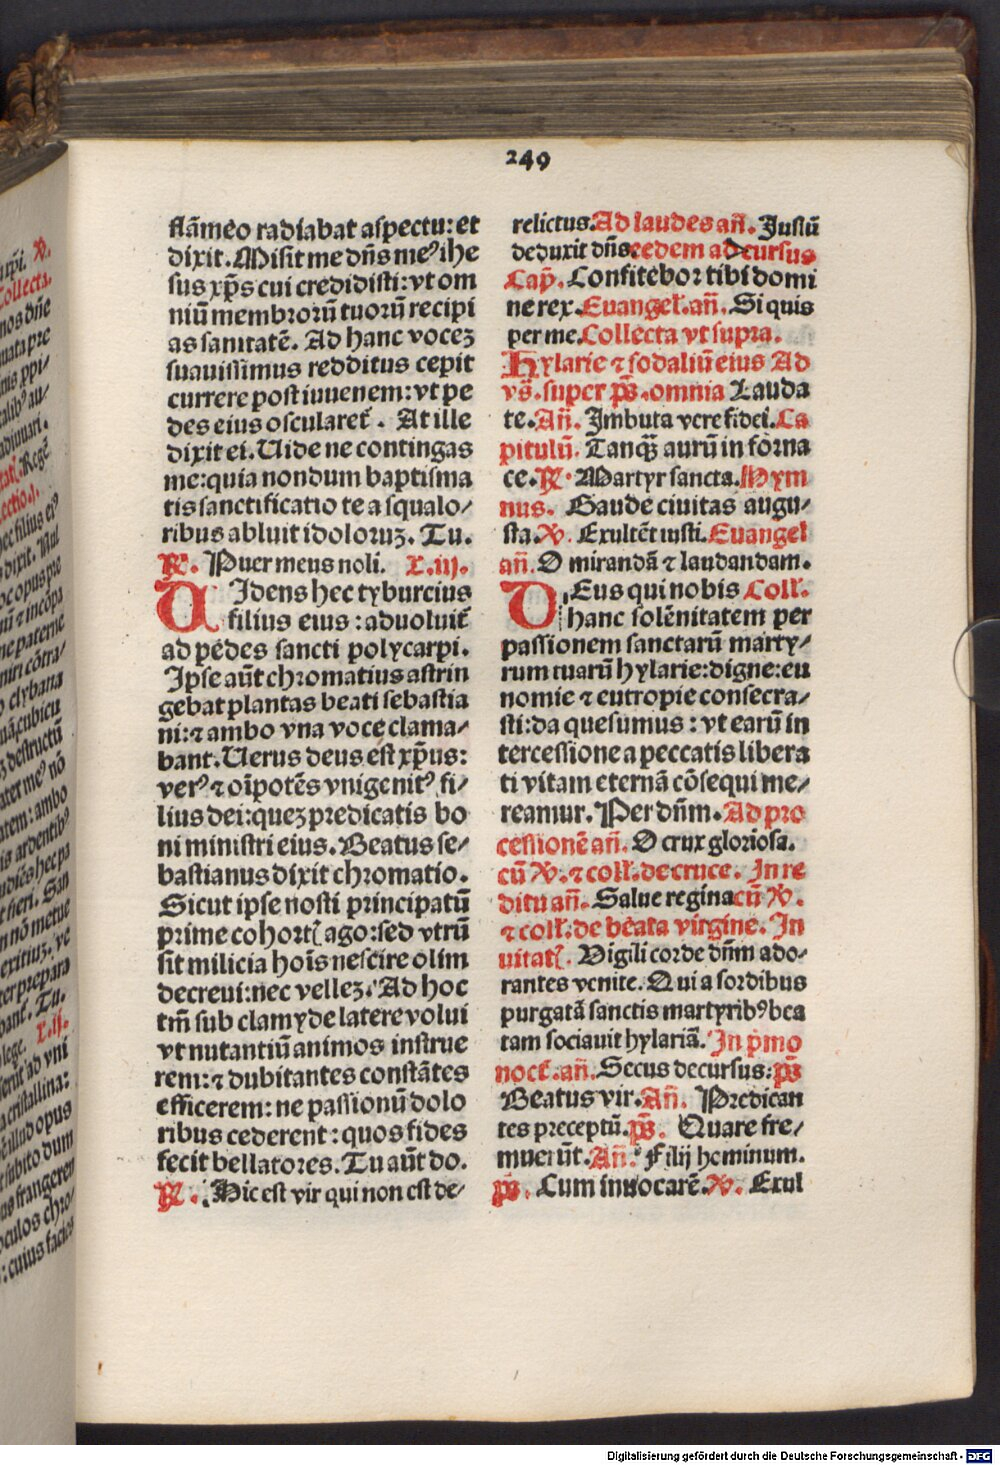 249
flãmeo radiabat aspectu: et
dixit. Misit me dñs meꝰ ihe
sus xp̃s cui credidisti: vt om
niũ membrorũ tuorũ recipi
as sanitatẽ. Ad hanc vocez
suauissimus redditus cepit
currere post iuuenem: vt pe
des eius oscularet̃. At ille
dixit ei. Uide ne contingas
me: quia nondum baptisma
tis sanctificatio te a squalo/
ribus abluit idoloruz. Tu.
℟. Puer meus noli. L. iij.
UIdens hec tyburcius
filius eius: aduoluit̃
ad pedes sancti polycarpi.
Ipse aũt chromatius astrin
gebat plantas beati sebastia
ni: ⁊ ambo vna voce clama/
bant. Uerus deus est xp̃us:
verꝰ ⁊ oĩpotẽs vnigenitꝰ fi/
lius dei: quez predicatis bo
ni ministri eius. Beatus se/
bastianus dixit chromatio.
Sicut ipse nosti principatũ
prime cohort̃ ago: sed vtrũ
sit milicia hoĩs nescire olim
decreui: nec vellez. Ad hoc
tm̃ sub clamyde latere volui
vt nutantiũ animos instrue
rem: ⁊ dubitantes constãtes
efficerem: ne passionũ dolo
ribus cederent: quos fides
fecit bellatores. Tu aũt do.
℟. Hic est vir qui non est de/
relictus. Ad laudes añ. Justũ
deduxit dñs eedem ad cursus
Cap̃. Confitebor tibi domi
ne rex. Euangel̃. añ. Si quis
per me. Collecta vt supra.
Hylarie ⁊ sodaliũ eius Ad
vs̃. super p̃s. omnia Lauda
te. Añ. Imbuta vere fidei. Ca
pitulũ. Tanq̃ aurũ in forna
ce. ℟. Martyr sancta. Hym
nus. Gaude ciuitas augu/
sta. ℣. Exultẽt iusti. Euangel̃
añ. O mirandã ⁊ laudandam.
DEus qui nobis Coll̃.
hanc solẽnitatem per
passionem sanctarũ marty/
rum tuarũ hylarie: digne: eu
nomie ⁊ eutropie consecra/
sti: da quesumus: vt earũ in
tercessione a peccatis libera
ti vitam eternã cõsequi me/
reamur. Per dñm. Ad pro
cessionẽ añ. O crux gloriosa.
cũ ℣. ⁊ coll̃. de cruce. In re
ditu añ. Salue regina cũ ℣.
⁊ coll̃. de beata virgine. In
uitat̃. Uigili corde dñm ado/
rantes venite. Qui a sordibus
purgatã sanctis martyribꝰ bea
tam sociauit hylariã. In p̃mo
noct̃. añ. Secus decursus: p̃s
Beatus vir. Añ. Predican
tes preceptũ. p̃s. Quare fre/
muerũt. Añ. Filij hominum.
p̃s. Cum inuocarẽ. ℣. Exul
Digitalisierung gefördert durch die Deutsche Forschungsgemeinschaft - DFG